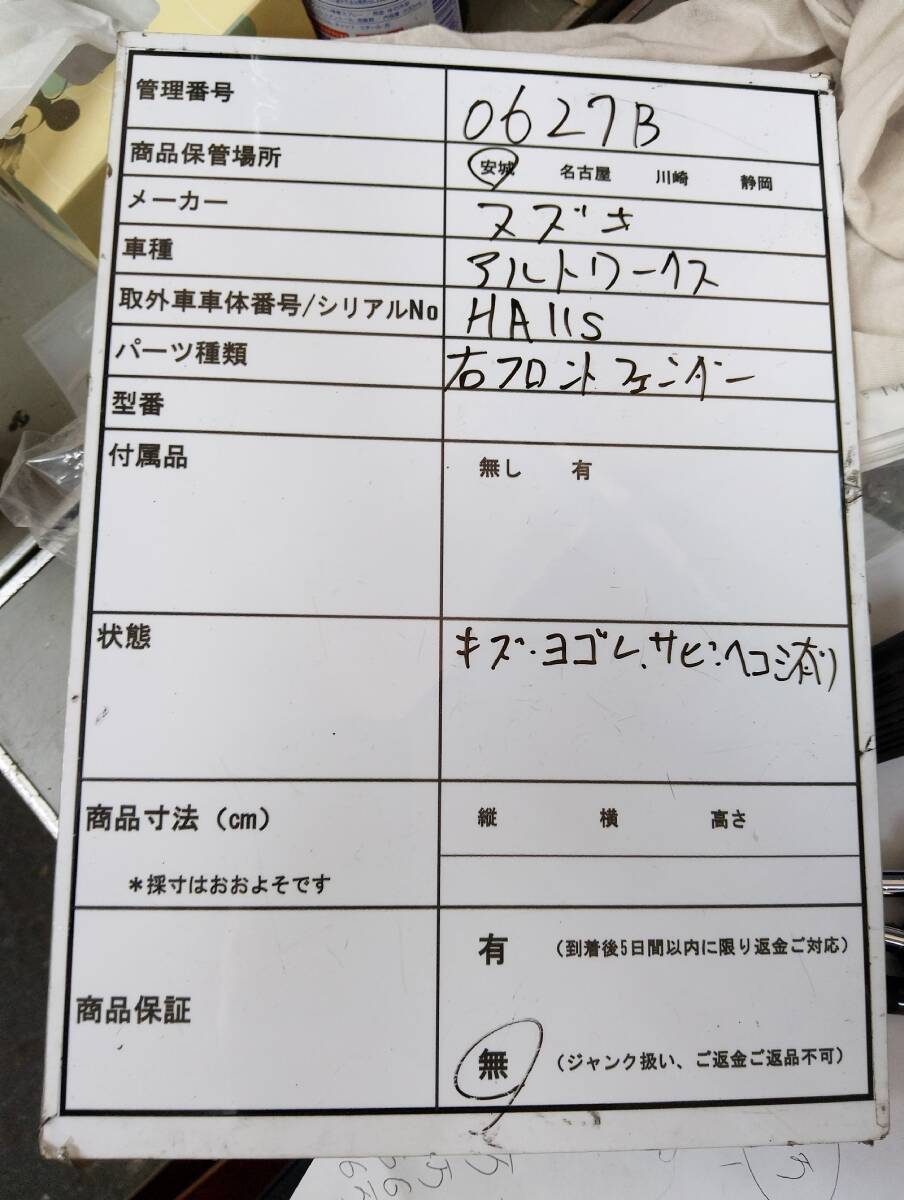 管理番号 0627B
商品保管場所 安城 名古屋 川崎 静岡
メーカー スズキ
車種 アルトワークス
取外車車体番号/シリアルNo HA11S
パーツ種類 右フロントフェンダー
型番
付属品 無し 有
状態 キズ・ヨゴレ、サビ・ヘコミ有り
商品寸法（cm） 縦 横 高さ
＊採寸はおおよそです
有 （到着後5日間以内に限り返金ご対応）
商品保証
無 （ジャンク扱い、ご返金ご返品不可）